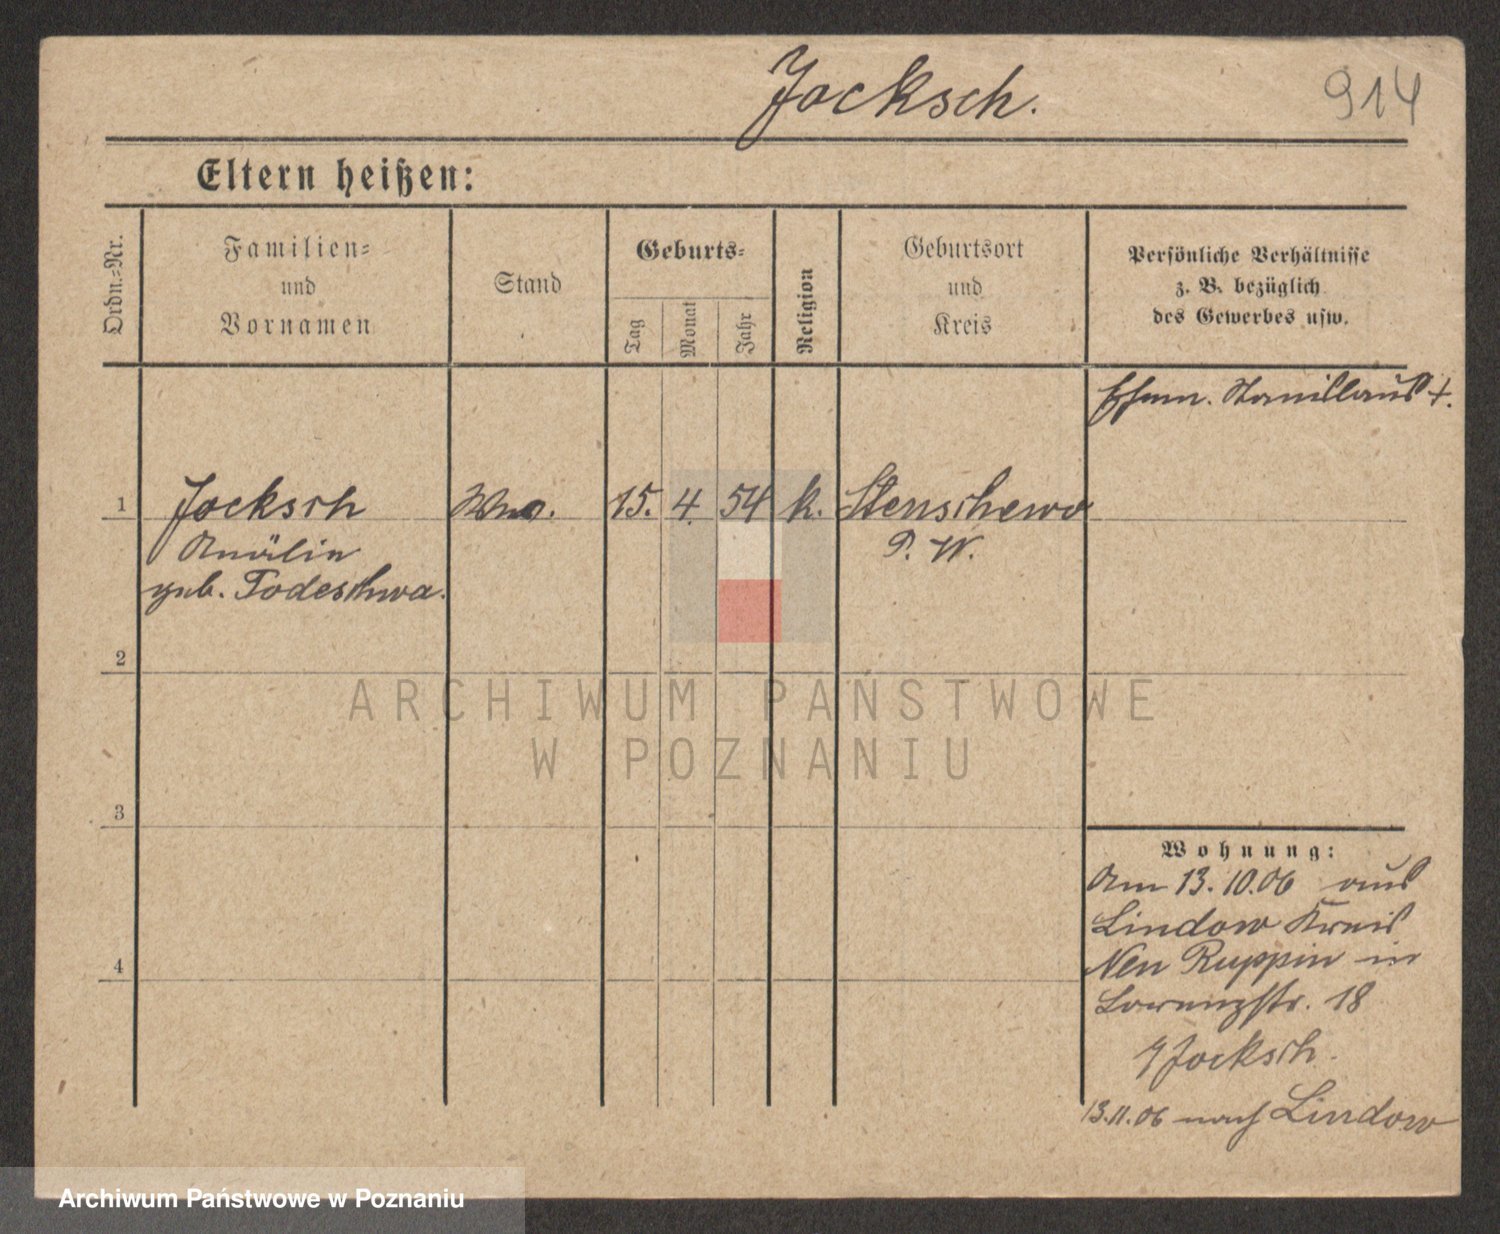 Jocksch.
914
Eltern heißen:
Ordn.=Nr.
Familien=
und
Vornamen
Stand
Geburts=
Tag
Monat
Jahr
Religion
Geburtsort
und
Kreis
Persönliche Verhältnisse
z. B. bezüglich
des Gewerbes usw.
Ehem. Stanislaus +.
1
Jocksch
geb. Todeschwa.
Wwe.
15.
4.
54
k.
Stenschewo
P. W.
2
3
4
Wohnung:
Am 13.10.06 aus
Lindow Kreis
Neu Ruppin in
Lorenzstr. 18
Jocksch.
13.11.06 nach Lindow
ARCHIWUM PAŃSTWOWE
W POZNANIU
Archiwum Państwowe w Poznaniu